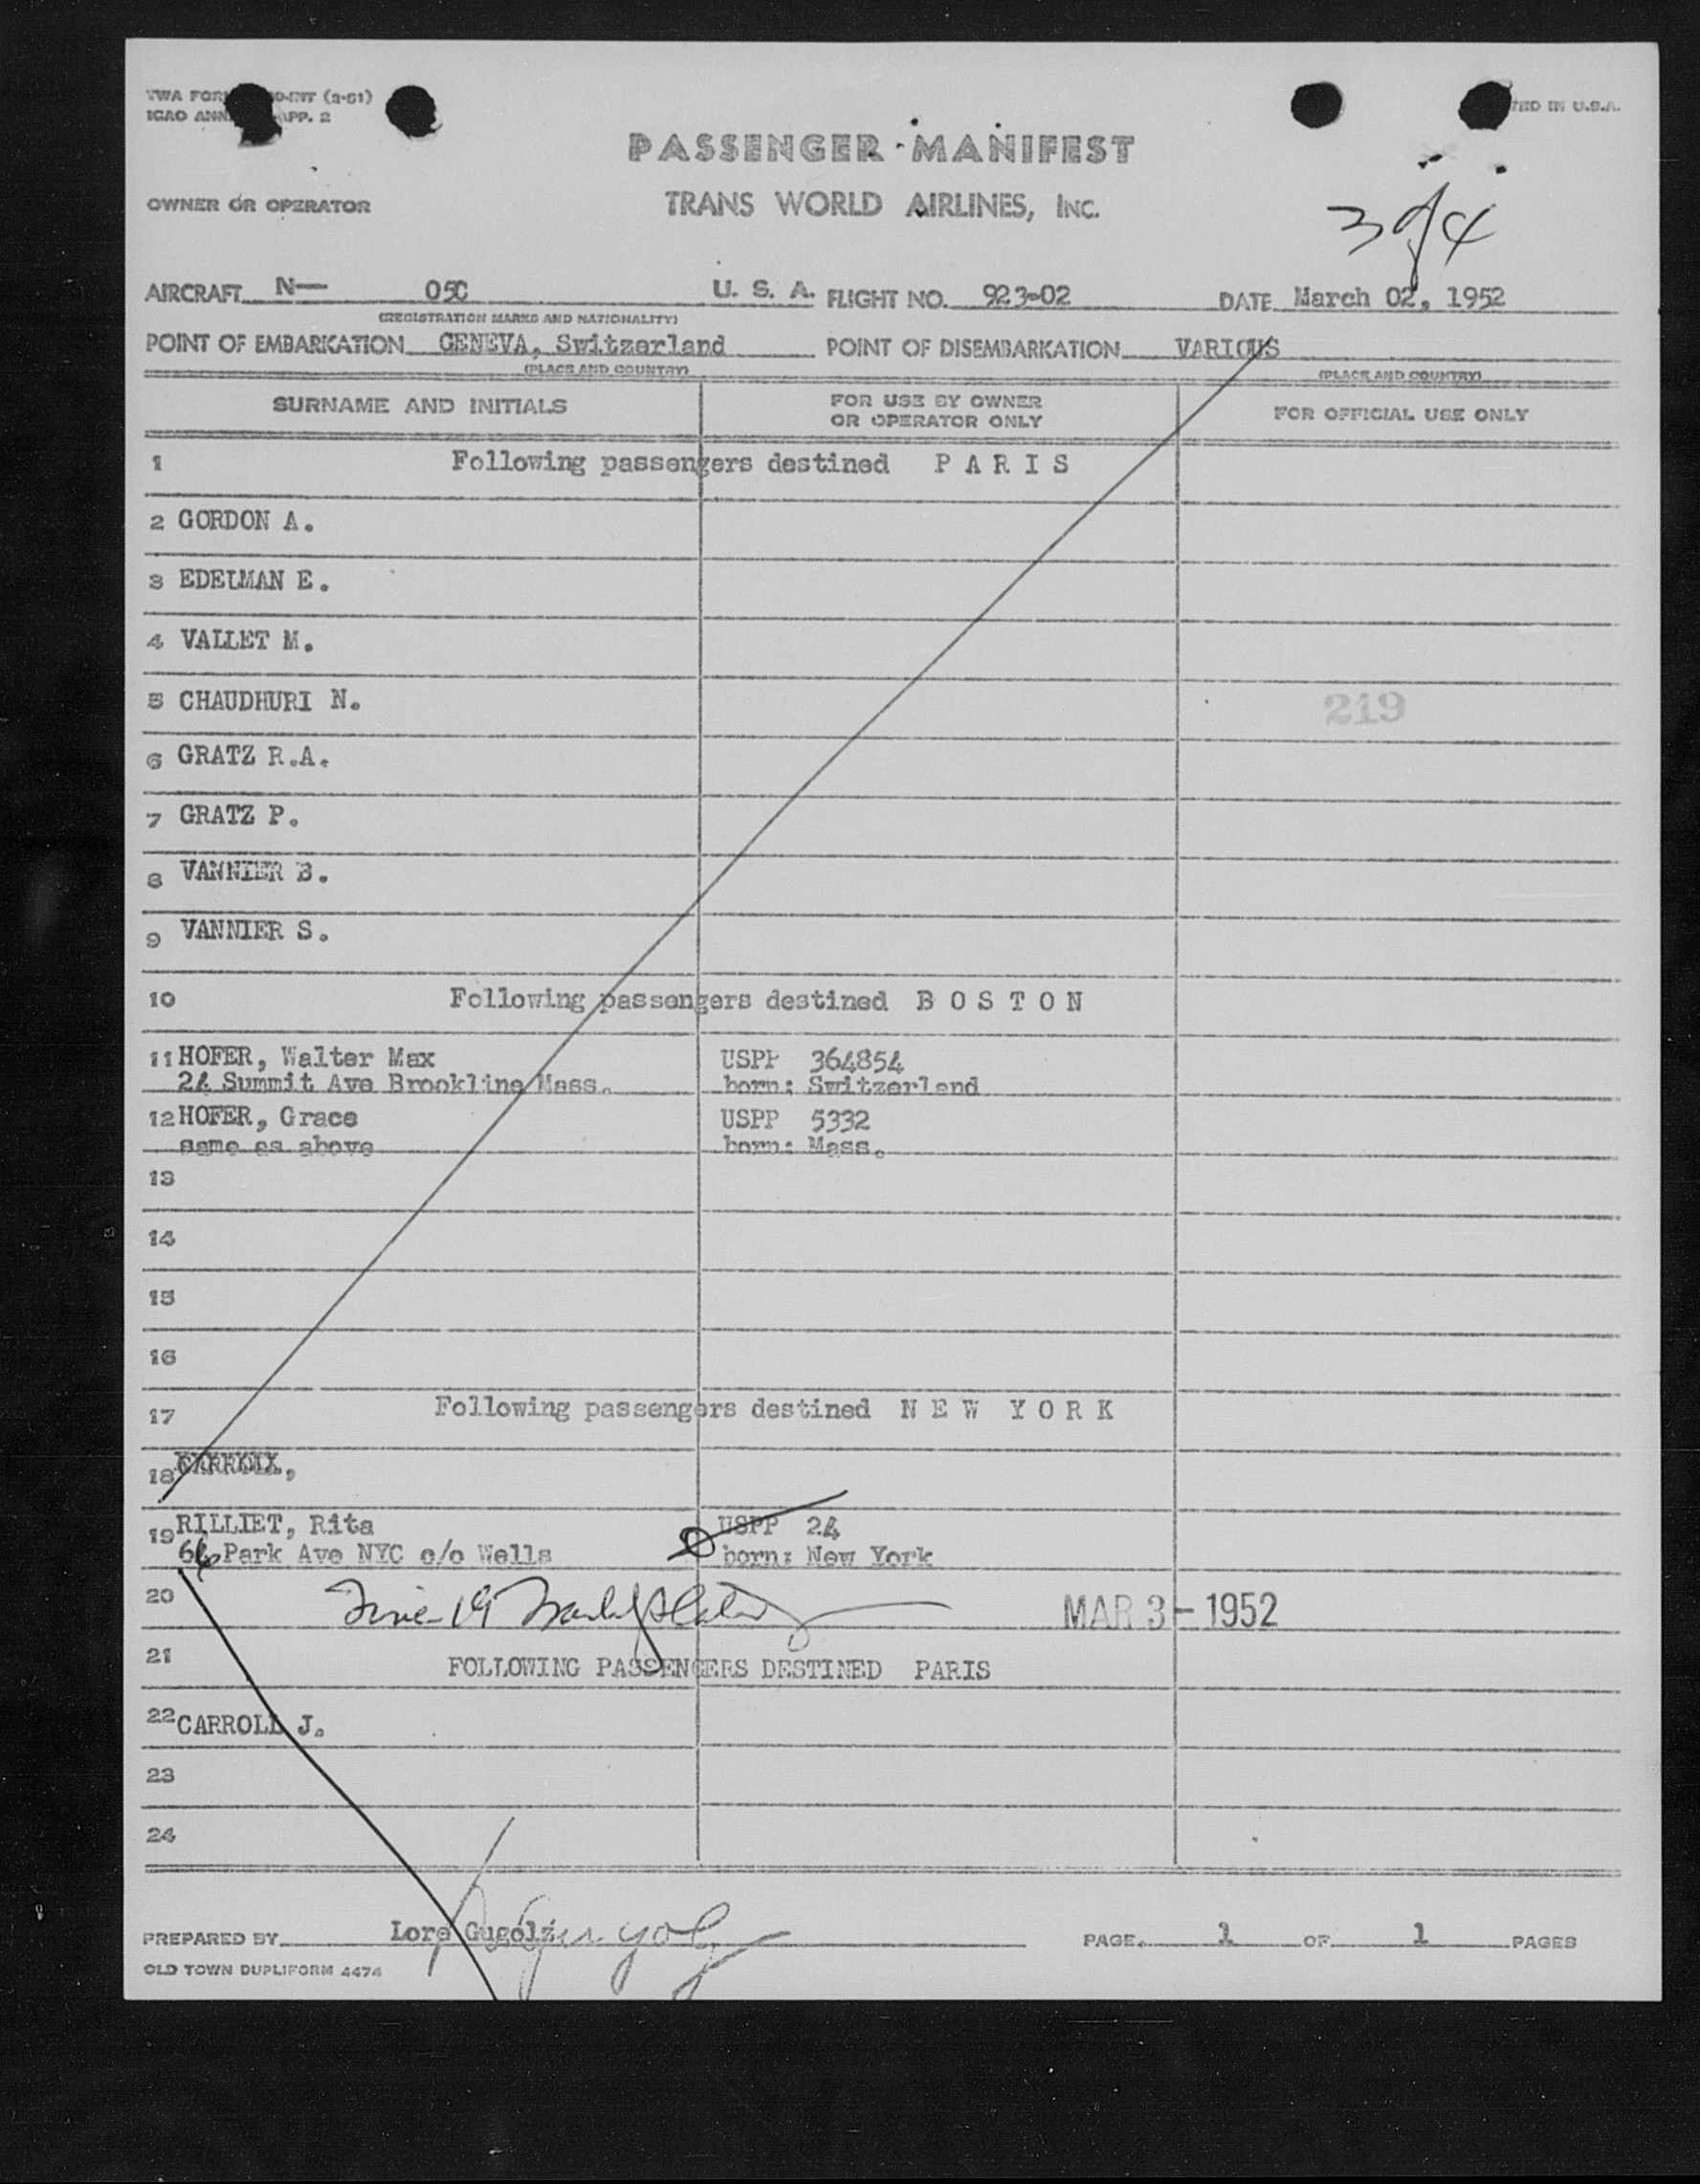 TWA FOR
ICAO ANN APP. 2
TED IN U.S.A.
PASSENGER MANIFEST
OWNER OR OPERATOR
TRANS WORLD AIRLINES, INC.
3 of 4
AIRCRAFT N— 05C U. S. A. FLIGHT NO. 923-02 DATE March 02, 1952
(REGISTRATION MARKS AND NATIONALITY)
POINT OF EMBARKATION GENEVA, Switzerland POINT OF DISEMBARKATION VARIOUS
(PLACE AND COUNTRY) (PLACE AND COUNTRY)
SURNAME AND INITIALS FOR USE BY OWNER OR OPERATOR ONLY FOR OFFICIAL USE ONLY
1 Following passengers destined P A R I S
2 GORDON A.
3 EDELMAN E.
4 VALLET M.
5 CHAUDHURI N. 219
6 GRATZ R.A.
7 GRATZ P.
8 VANNIER B.
9 VANNIER S.
10 Following passengers destined B O S T O N
11 HOFER, Walter Max USPP 364854
24 Summit Ave Brookline Mass. born: Switzerland
12 HOFER, Grace USPP 5332
same as above born: Mass.
13
14
15
16
17 Following passengers destined N E W Y O R K
18
19 RILLIET, Rita USPP 24
Park Ave NYC c/o Wells born: New York
20 MAR 3 - 1952
21 FOLLOWING PASSENGERS DESTINED PARIS
22 CARROLL J.
23
24
PREPARED BY Lore Gugolz PAGE 1 OF 1 PAGES
OLD TOWN DUPLIFORM 4474